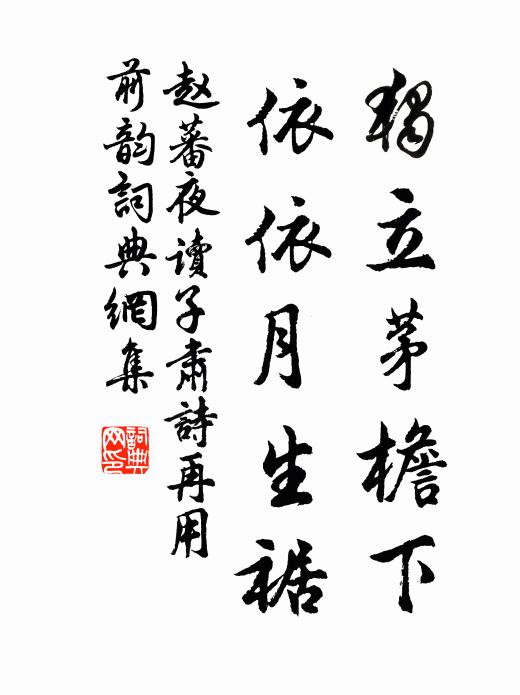 獨立茅檐下
依依月生裾
赵蕃夜讀子肅詩再用
前韵詞典網集
詞典
网印